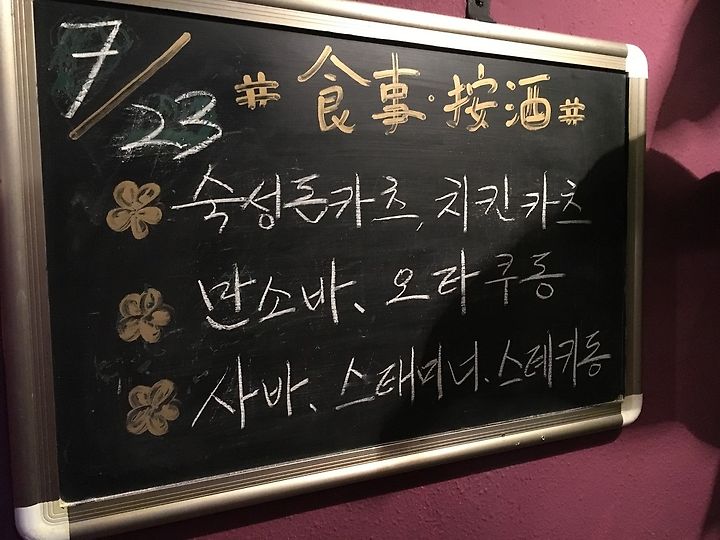 7/23
# 食事·按酒 #
숙성돈카츠, 치킨카츠
만소바、오타쿠동
사바、스태미너.스테키동